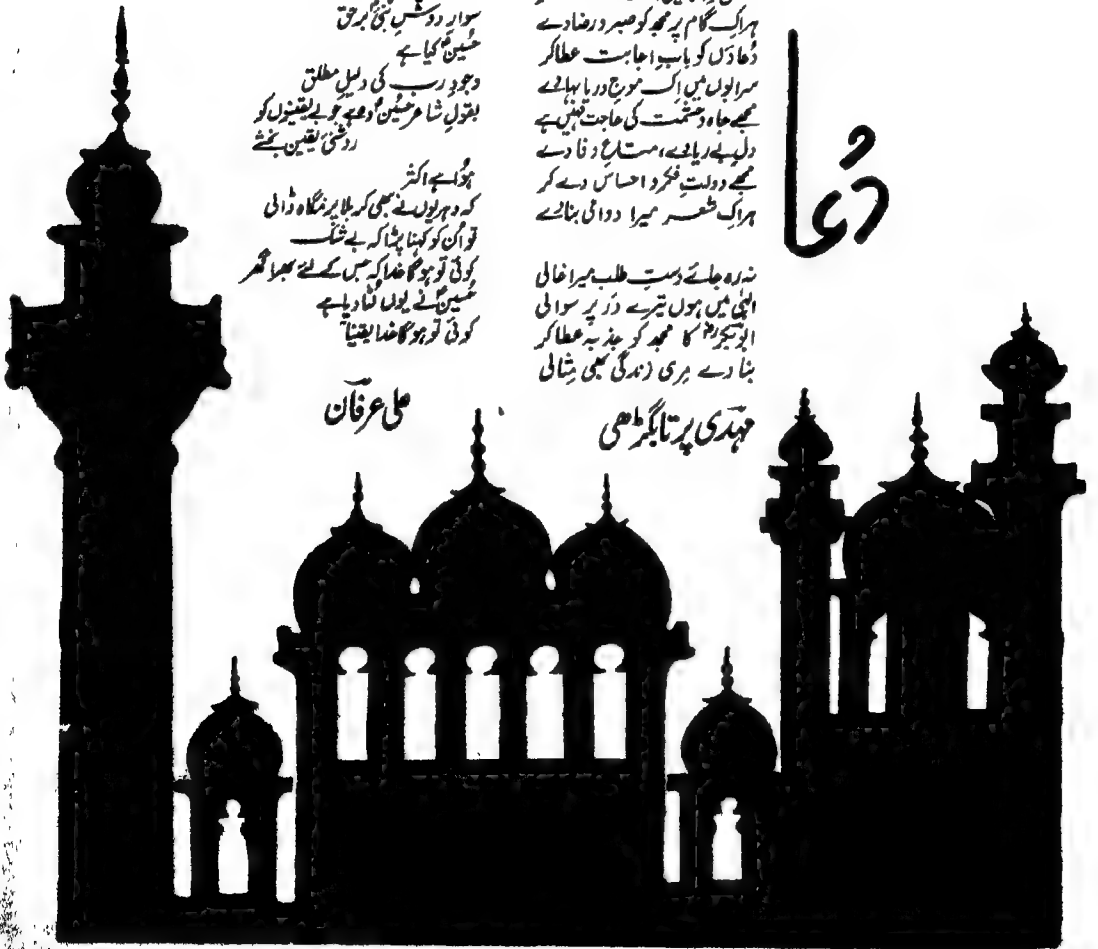 دُعا
ہر اک گام پر مجھ کو صبر و رضا دے
دُعاؤں کو بابِ اجابت عطا کر
سرابوں میں اِک موجِ دریا بہا دے
مجھے جاہ و حشمت کی حاجت نہیں ہے
دلِ بے ریا دے، متاعِ وفا دے
مجھے دولتِ فکر و احساس دے کر
ہر اک شعر میرا دوامی بنا دے
نہ رہ جائے دستِ طلب میرا خالی
الٰہی میں ہوں تیرے در پر سوالی
ابوبکرؓ کا مجھ کو جذبہ عطا کر
بنا دے مری زندگی بھی مثالی
مہدی پرتاپگڑھی
سوارِ دوشِ نبیؐ برحق
حُسینؑ کیا ہے
وجودِ رب کی دلیلِ مطلق
بقولِ شاعر حُسینؑ وہ ہے جو بے یقینوں کو
روشنیٔ یقین بخشے
ہُوا ہے اکثر
کہ دہریوں نے بھی کربلا پر نگاہ ڈالی
تو اُن کو کہنا پڑا کہ بے شک
کوئی تو ہوگا خدا کہ جس کے لئے بھرا گھر
حُسینؑ نے یوں لُٹا دیا ہے
کوئی تو ہوگا خدا یقیناً
علی عرفان